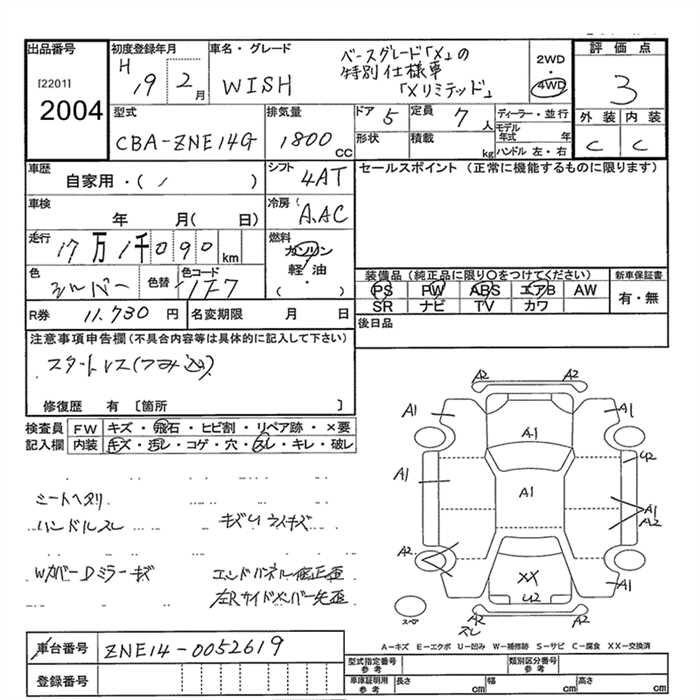 出品番号
[2201]
2004
初度登録年月
H 19 2 月
車名・グレード
WISH
ベースグレード「X」の
特別仕様車
「Xリミテッド」
2WD
4WD
評価点
3
外装 内装
C C
型式
CBA-ZNE14G
排気量
1800 CC
ドア 5
定員 7 人
形状
積載 kg
ディーラー・並行
モデル年式 年
ハンドル 左・右
車歴
自家用・( )
シフト
4AT
セールスポイント (正常に機能するものに限ります)
車検
年 月( 日)
冷房
A.AC
走行
17万1千090 km
燃料
ガソリン
軽油
( )
色
シルバー
色替
色コード
1F7
装備品(純正品に限り○をつけてください)
PS PW ABS エアB AW
SR ナビ TV カワ
新車保証書
有・無
R券
11,730 円
名変期限 月 日
後日品
注意事項申告欄(不具合内容等は具体的に記入して下さい)
スタートレス(つみ込)
修復歴 有 〔箇所 〕
検査員
記入欄
FW キズ・飛石・ヒビ割・リペア跡・×要
内装 キズ・汚レ・コゲ・穴・スレ・キレ・破レ
シートヘタリ
ハンドルスレ
キズU ウスキズ
WカバーDミラーキズ
エンドパネル修正歪
左Rサイドメンバー先歪
A2 A2
A1 A1
A1
U2
A1 A1
A1
A2
A2
XX
U2
A1
A2 A2
スレ
スペア
A-キズ E-エクボ U-凹み W-補修跡 S-サビ C-腐食 XX-交換済
車台番号
ZNE14-0052619
登録番号
型式指定番号
参考
類別区分番号
参考
車庫証明用
参考
長さ cm
幅 cm
高さ cm